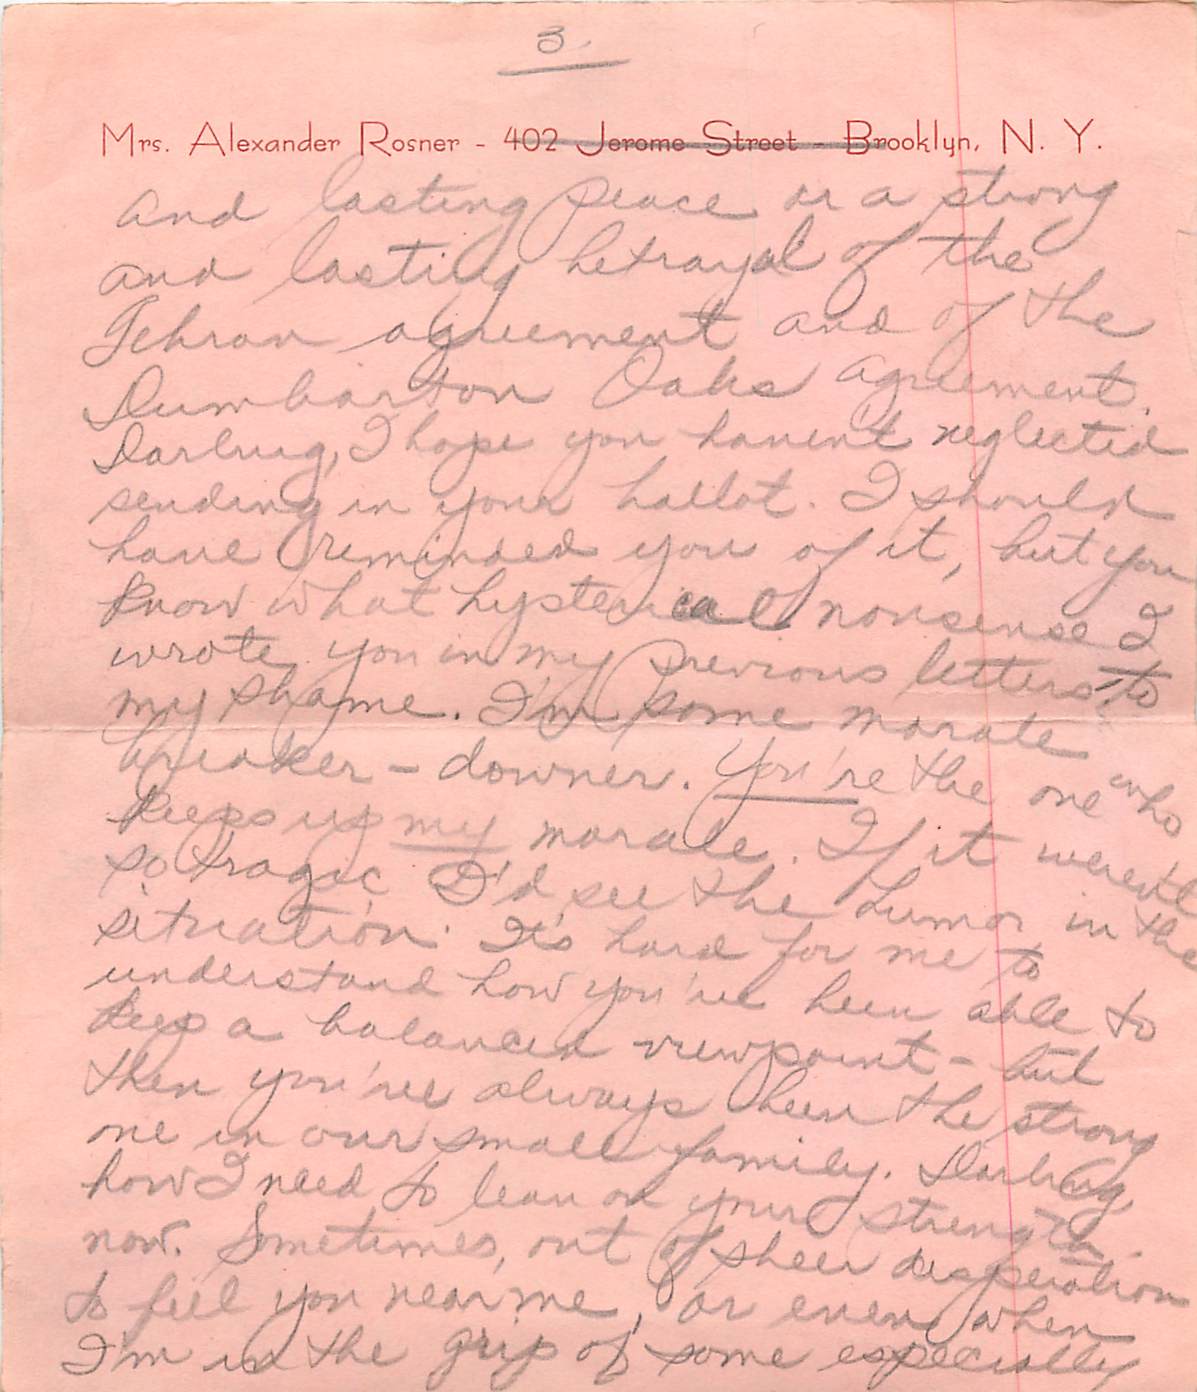 3.
Mrs. Alexander Rosner - 402 Jerome Street - Brooklyn, N. Y.
and lasting peace or a strong
and lasting betrayal of the
Tehran agreement and of the
Dumbarton Oaks agreement.
Darling, I hope you haven't neglected
sending in your ballot. I should
have reminded you of it, but you
know what hysterical nonsense I
wrote you in my previous letters to
my shame. I'm some morale
breaker-downer. You're the one who
keeps up my morale. If it weren't
so tragic I'd see the humor in the
situation. It's hard for me to
understand how you've been able to
keep a balanced viewpoint - but
then you've always been the strong
one in our small family. Darling,
how I need to lean on your strength
now. Sometimes, out of sheer desperation
to feel you near me, or even when
I'm in the grip of some especially